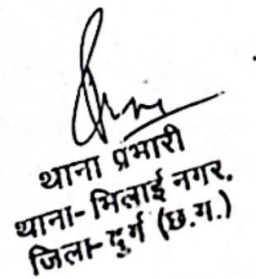 थाना प्रभारी
थाना- भिलाई नगर.
जिला- दुर्ग (छ.ग.)